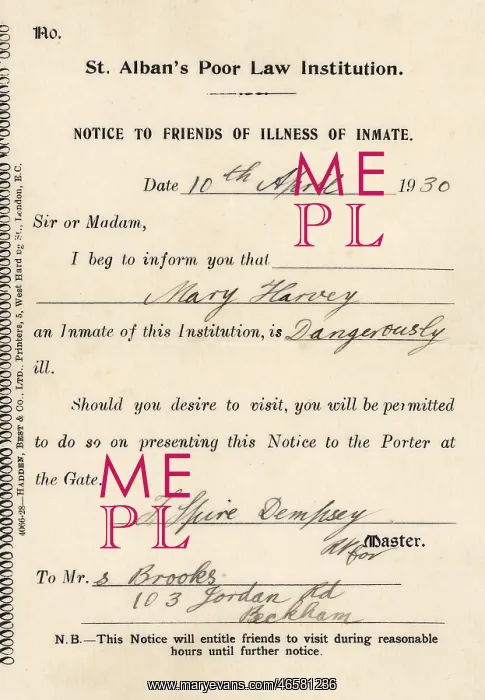 No.
St. Alban's Poor Law Institution.
NOTICE TO FRIENDS OF ILLNESS OF INMATE.
Date 10th April 1930
Sir or Madam,
I beg to inform you that
Mary Harvey
an Inmate of this Institution, is Dangerously
ill.
Should you desire to visit, you will be permitted
to do so on presenting this Notice to the Porter at
the Gate.
Spire Dempsey
for Master.
To Mr.s Brooks
103 Jordan Rd
Peckham
N.B.—This Notice will entitle friends to visit during reasonable
hours until further notice.
4066-28—HADDEN, BEST & CO., LTD., Printers, 5, West Harding St., London, E.C.
ME
PL
ME
PL
www.maryevans.com/46581236